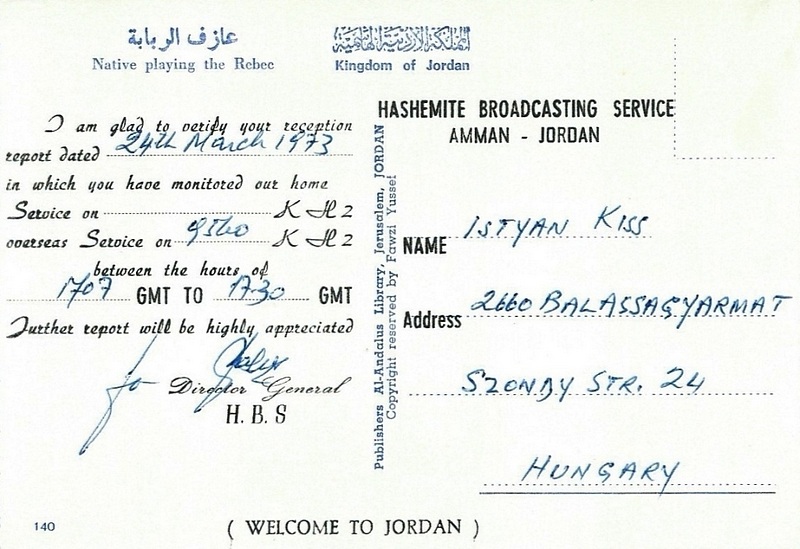 عازف الربابة
Native playing the Rebec
المملكة الأردنية الهاشمية
Kingdom of Jordan
I am glad to verify your reception
report dated 24th March 1973
in which you have monitored our home
Service on KH2
overseas Service on 9560 KH2
between the hours of
1707 GMT TO 1730 GMT
Further report will be highly appreciated
for
Director General
H.B.S
140
Publishers Al-Andalus Library, Jerusalem, JORDAN
Copyright reserved by Fawzi Yussef
HASHEMITE BROADCASTING SERVICE
AMMAN - JORDAN
NAME ISTYAN KISS
Address 2660 BALASSAGYARMAT
SZONDY STR. 24
HUNGARY
( WELCOME TO JORDAN )